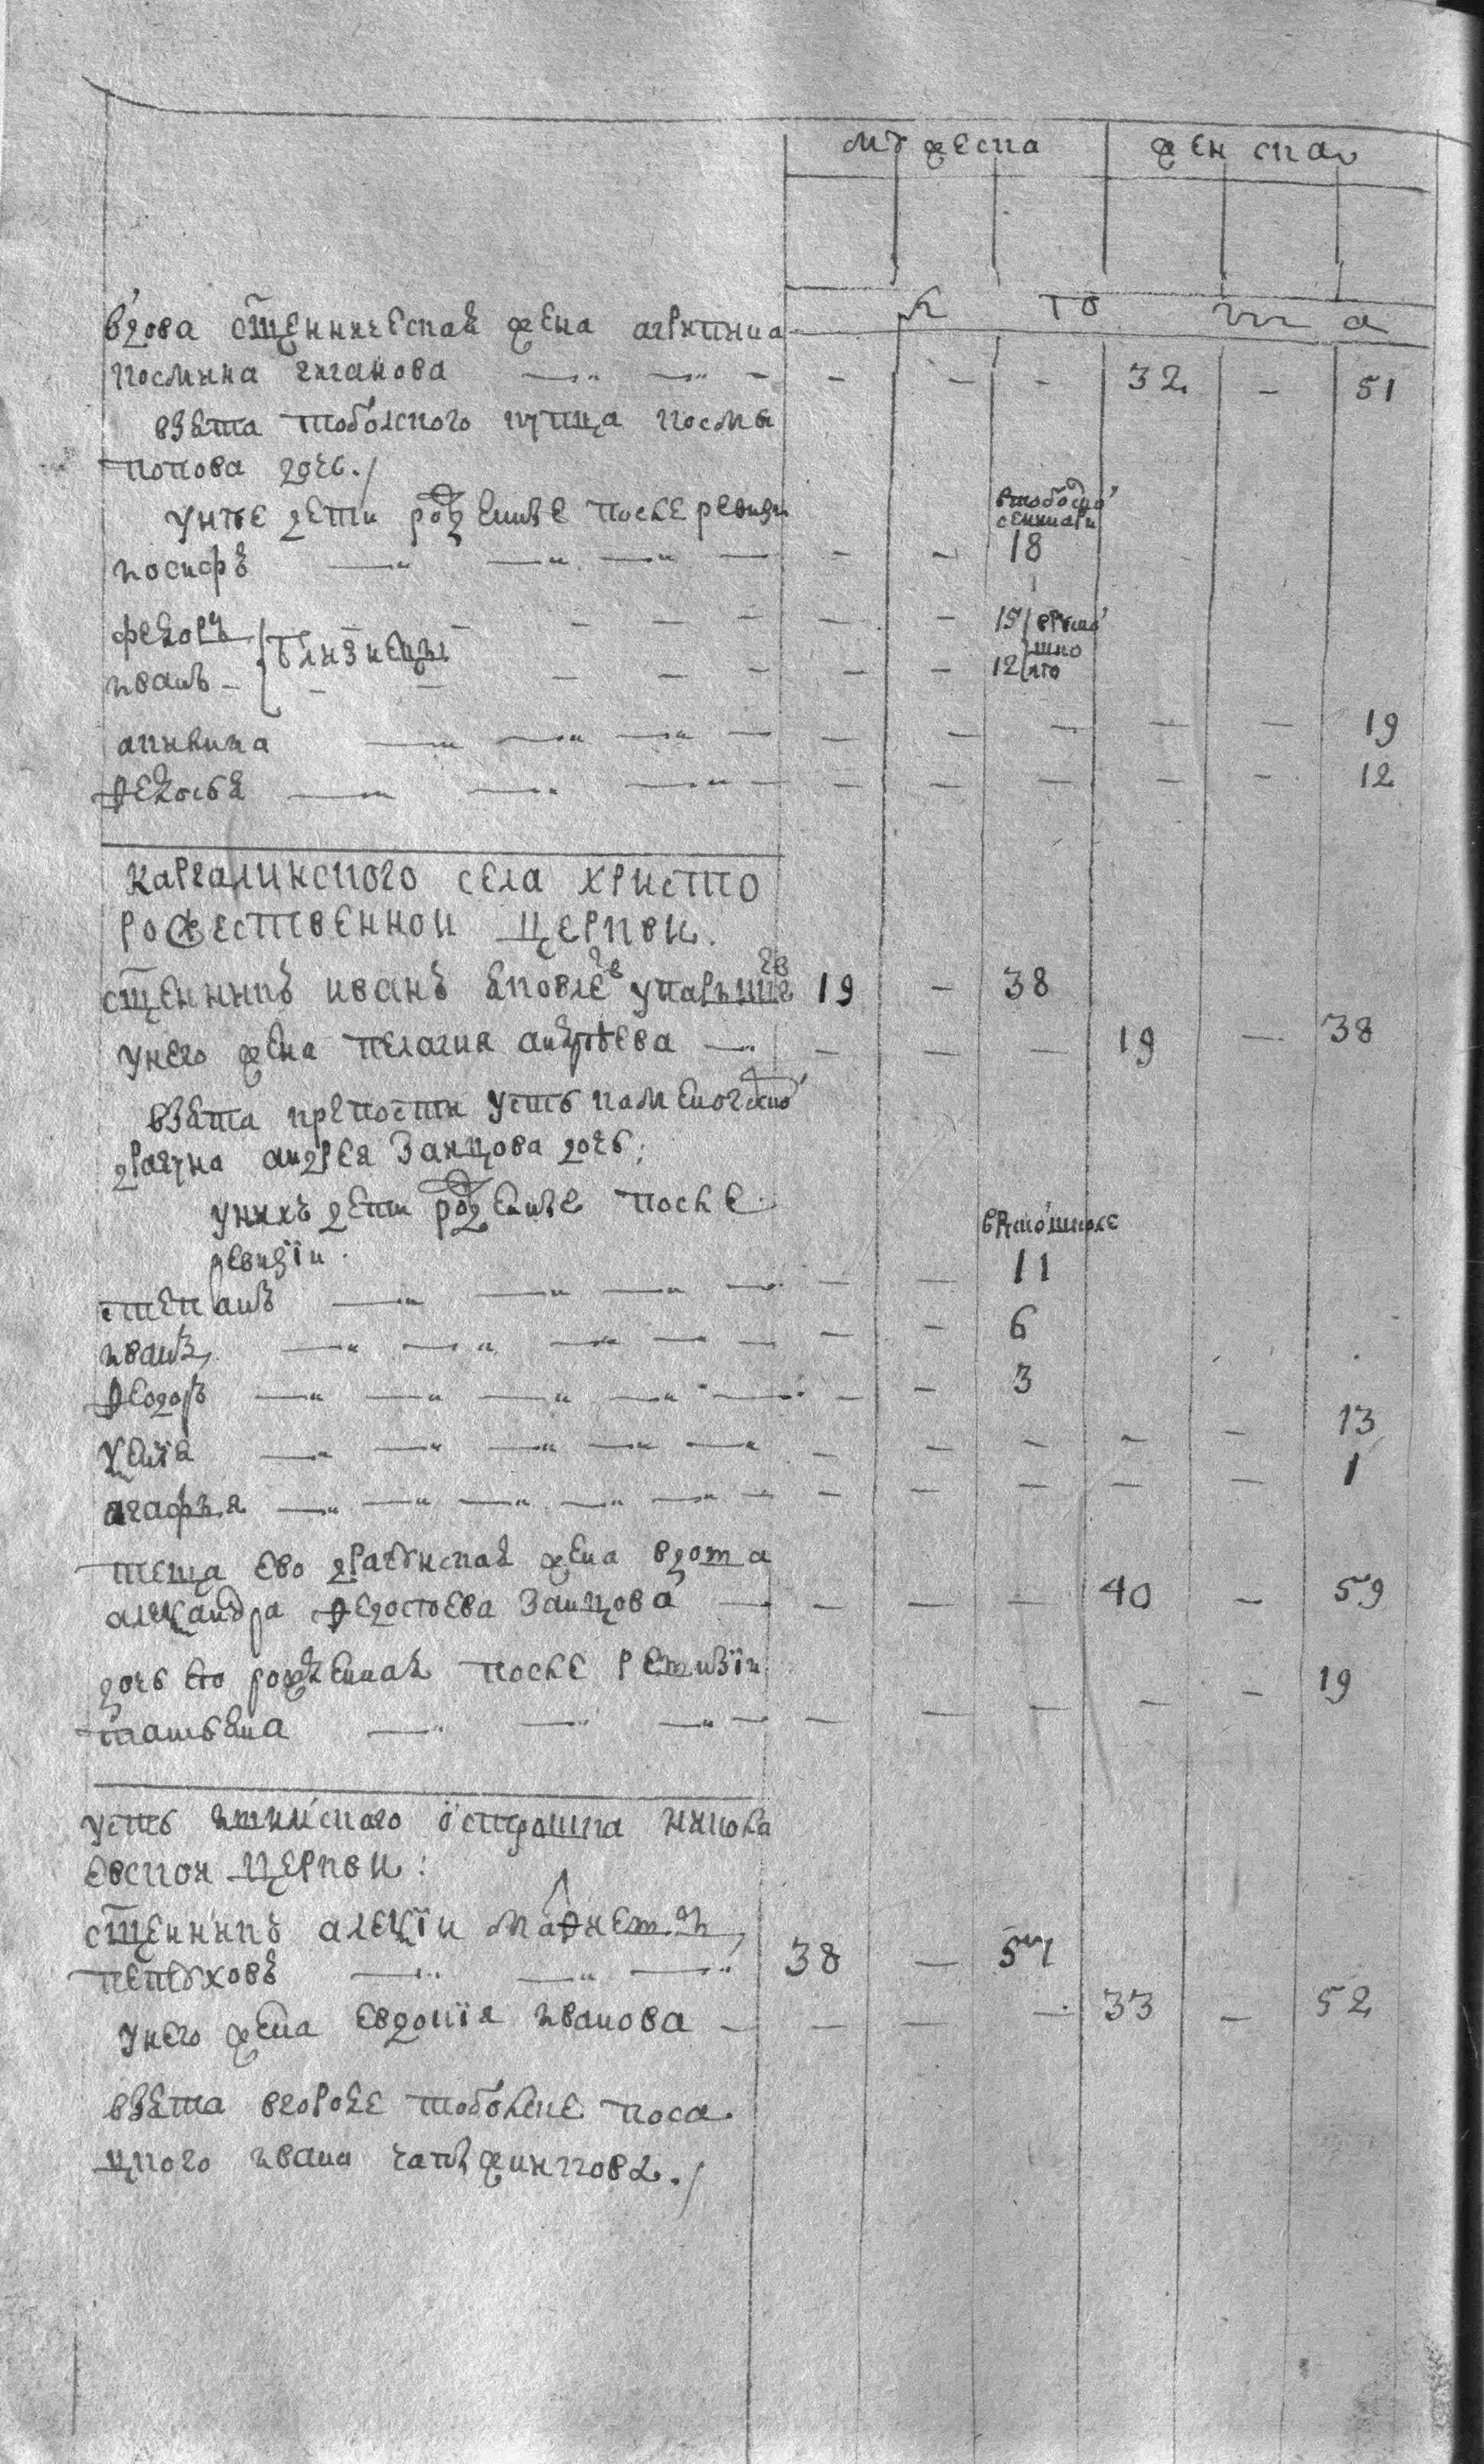 мужеска женска
лѣ то чи а
вдова сщенническая жена агрипина
космина циганова 32 51
взята тоболского купца космы
попова дочь
унъе дети рожденные после ревизи
втобоской семинари
иосифъ 18
федоръ 15
близнецы
иванъ 12
акилина 19
ѳедосья 12
Каргалинского села христо
рожественной церкви.
сщенникъ иванъ яковлевъ 19 38
унего жена пелагия андреева 19 38
взята крепости усть каменогорской
драгуна андрея Заицова дочь
унихъ дети рожденные после
ревизïи
11
степанъ
иванъ 6
ѳеодоръ 3
13
агафья 1
теща ево драгунская жена вдова
александра ѳедосеева Заицова 40 59
дочь ево рожденная после ревизïи
татьяна 19
усть ишимского острошка никола
евской церкви:
сщенникъ алеѯïи маѳиевъ
петуховъ 38 57
унего жена евдокïя иванова 33 52
взята вгороде тоболске поса
цкого ивана